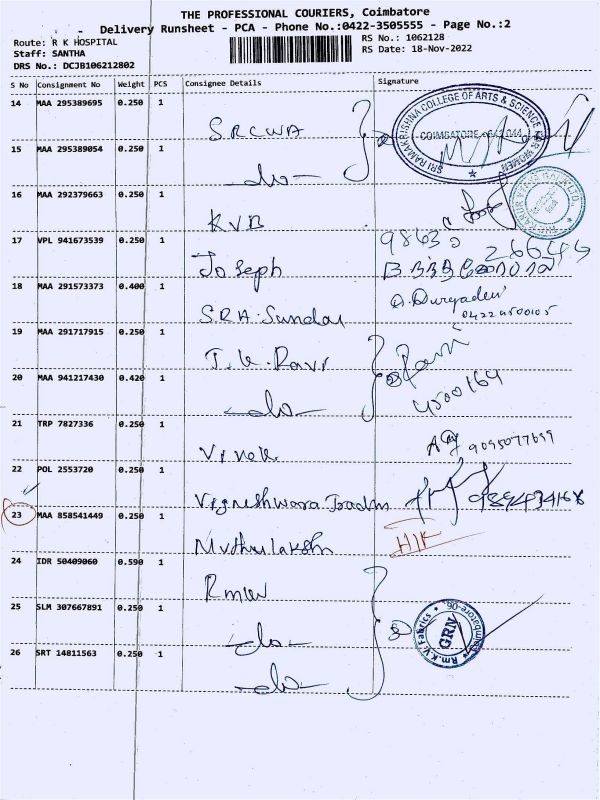 THE PROFESSIONAL COURIERS, Coimbatore
Delivery Runsheet - PCA - Phone No.:0422-3505555 - Page No.:2
Route: R K HOSPITAL
RS No.: 1062128
Staff: SANTHA
RS Date: 18-Nov-2022
DRS No.: DCJB106212802
S No Consignment No Weight PCS Consignee Details Signature
14 MAA 295389695 0.250 1
SRCWA
SRI RAMAKRISHNA COLLEGE OF ARTS & SCIENCE FOR WOMEN
COIMBATORE-641 044
15 MAA 295389054 0.250 1
-do-
16 MAA 292379663 0.250 1
KVB
17 VPL 941673539 0.250 1
Joseph
98630 26646
18 MAA 291573373 0.400 1
S.R.A. Sundar
D. Durgadevi
19 MAA 291717915 0.250 1
T.K. Ravi
Ravi
20 MAA 941217430 0.420 1
-do-
4500164
21 TRP 7827336 0.250 1
Vivek
9095077699
22 POL 2553720 0.250 1
Vigneshwara Tradin
23 MAA 858541449 0.250 1
Muthulaksh
H/K
24 IDR 50409060 0.590 1
Rmkv
25 SLM 307667891 0.250 1
-do-
Rm.K.V. Fabrics
GRN
Coimbatore-06
26 SRT 14811563 0.250 1
-do-